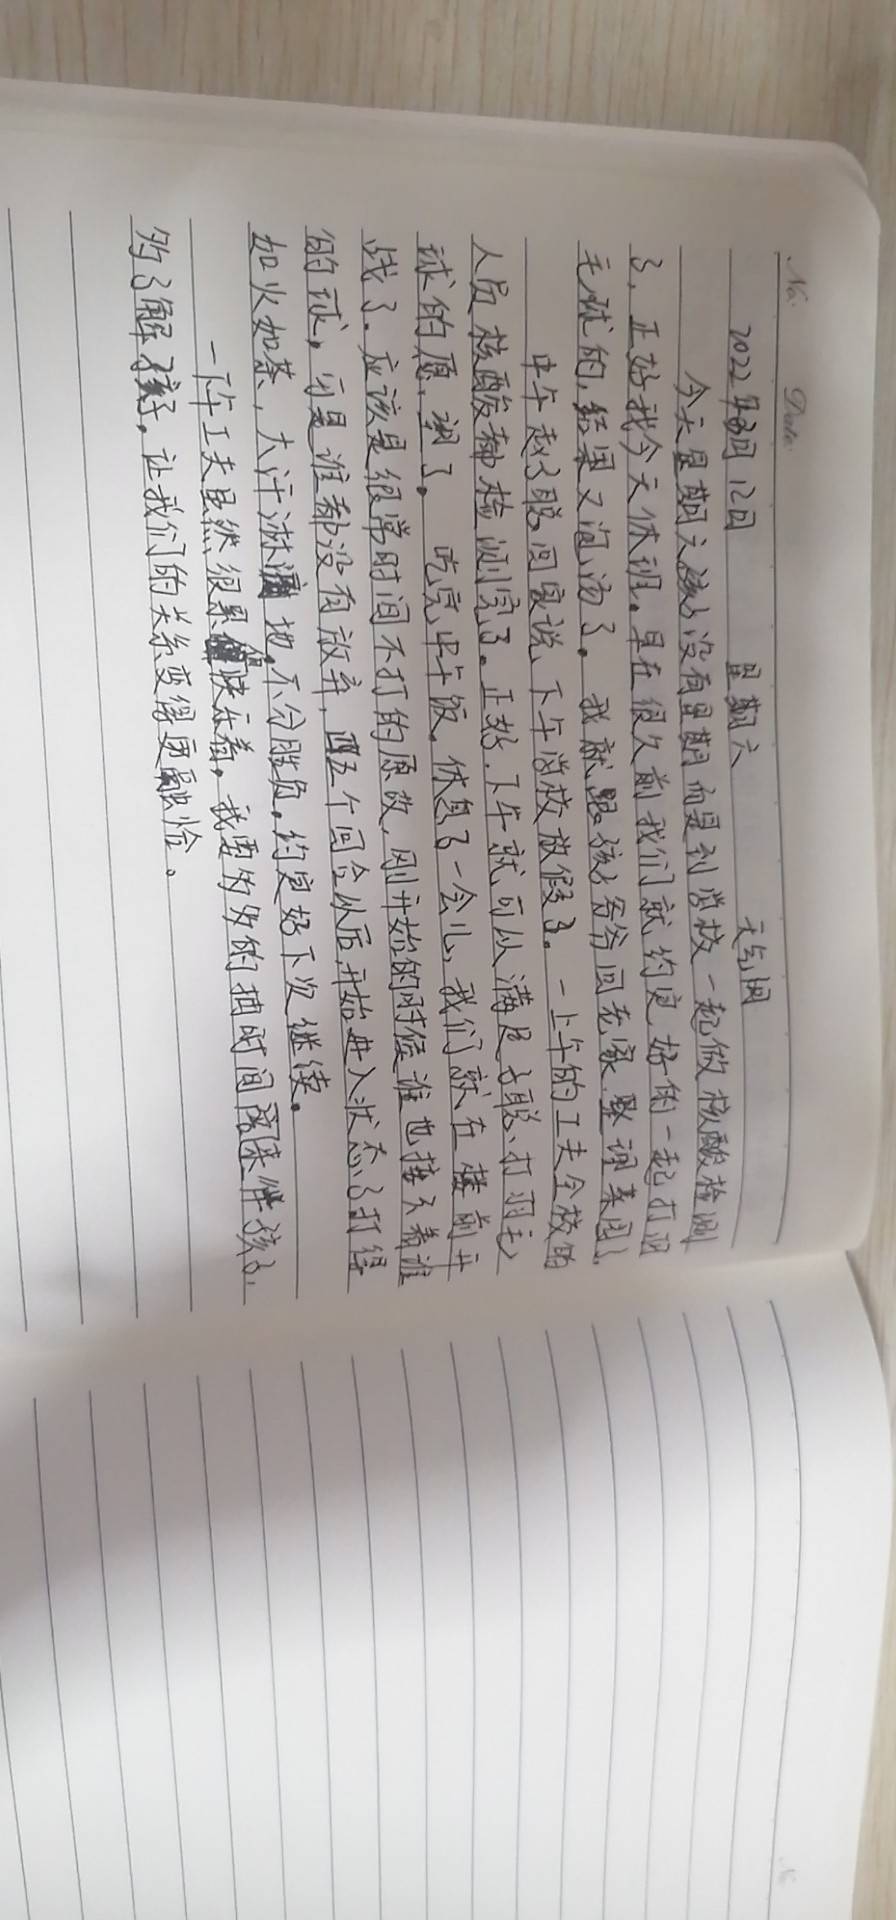 No. Date.
2022年3月12日 星期六 天气阴
今天星期六孩子没有星期而是到学校一起做核酸检测
了，正好我今天休班。早在很久前我们就约定好的一起打羽
毛球的，结果又泡汤了。我就跟孩子爷爷回老家整理菜园了
中午赵子聪回家说、下午学校放假了。一上午的工夫全校的
人员核酸都检测完了。正好，下午就可以满足子聪、打羽毛
球的愿望了。吃完中午饭，休息了一会儿，我们就在楼前开
战了。应该是很常时间不打的原故，刚开始的时候谁也接不着谁
的球，可是谁都没有放弃，四五个回合以后开始进入状态了打得
如火如荼，大汗淋漓地，不分胜负。约定好下次继续。
一下午工夫虽然很累但快乐着。我要多的抽时间陪伴孩子，
多了解孩子。让我们的关系变得更融恰。